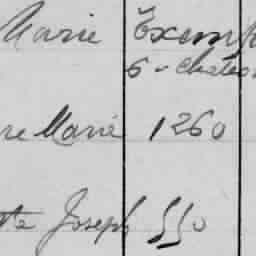 Marie Exemp
6 - Chateau
re Marie 1260
te Joseph 550